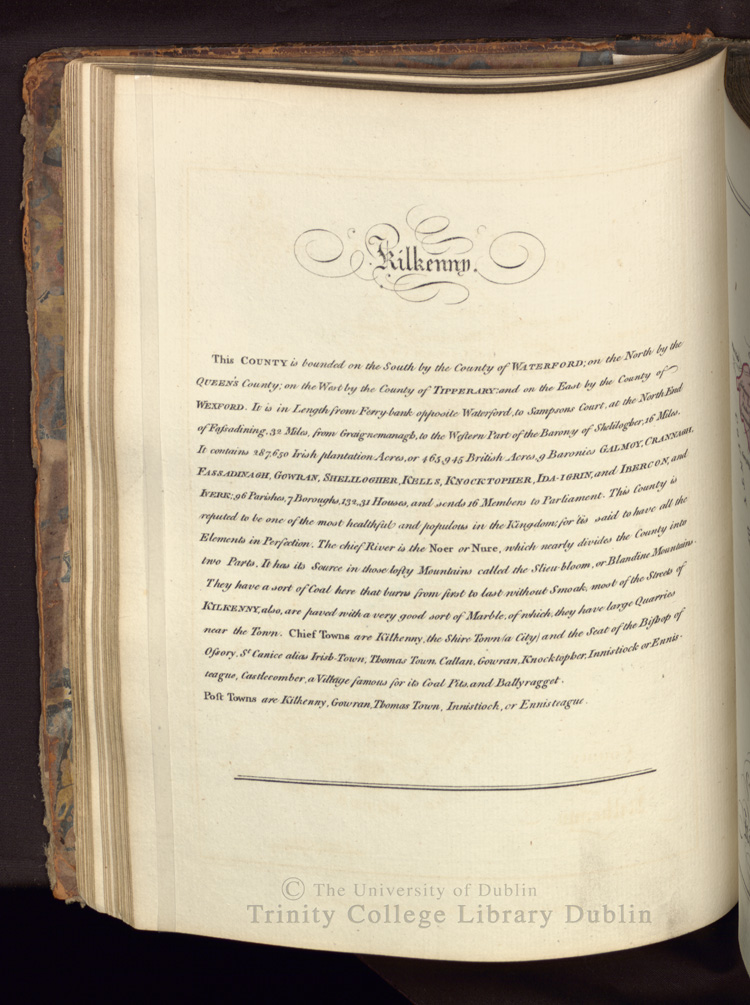 Kilkenny.
This COUNTY is bounded on the South by the County of WATERFORD; on the North by the
QUEEN'S County; on the West by the County of TIPPERARY: and on the East by the County of
WEXFORD. It is in Length from Ferry-bank opposite Waterford, to Sampsons Court, at the North End
of Fassadining, 32 Miles, from Graignemanagh, to the Western Part of the Barony of Shelilogher, 16 Miles.
It contains 287,650 Irish plantation Acres, or 465,945 British Acres, 9 Baronies GALMOY, CRANNAGH,
FASSADINAGH, GOWRAN, SHELILOGHER, KELLS, KNOCKTOPHER, IDA-IGRIN, and IBERCON, and
IVERK:, 96 Parishes, 7 Boroughs, 132,31 Houses, and sends 16 Members to Parliament. This County is
reputed to be one of the most healthful and populous in the Kingdom; for 'tis said to have all the
Elements in Perfection. The chief River is the Noer or Nure, which nearly divides the County into
two Parts. It has its Source in those lofty Mountains called the Slieu-bloom, or Blandine Mountains.
They have a sort of Coal here that burns from first to last without Smoak, most of the Streets of
KILKENNY, also, are paved with a very good sort of Marble, of which, they have large Quarries
near the Town. Chief Towns are Kilkenny, the Shire Town (a City) and the Seat of the Bishop of
Ossory, St. Canice alias Irish-Town, Thomas Town, Callan, Gowran, Knocktopher, Innistiock or Ennis-
teague, Castlecomber, a Village famous for its Coal Pits, and Ballyragget.
Post Towns are Kilkenny, Gowran, Thomas Town, Innistiock, or Ennisteague.
© The University of Dublin
Trinity College Library Dublin